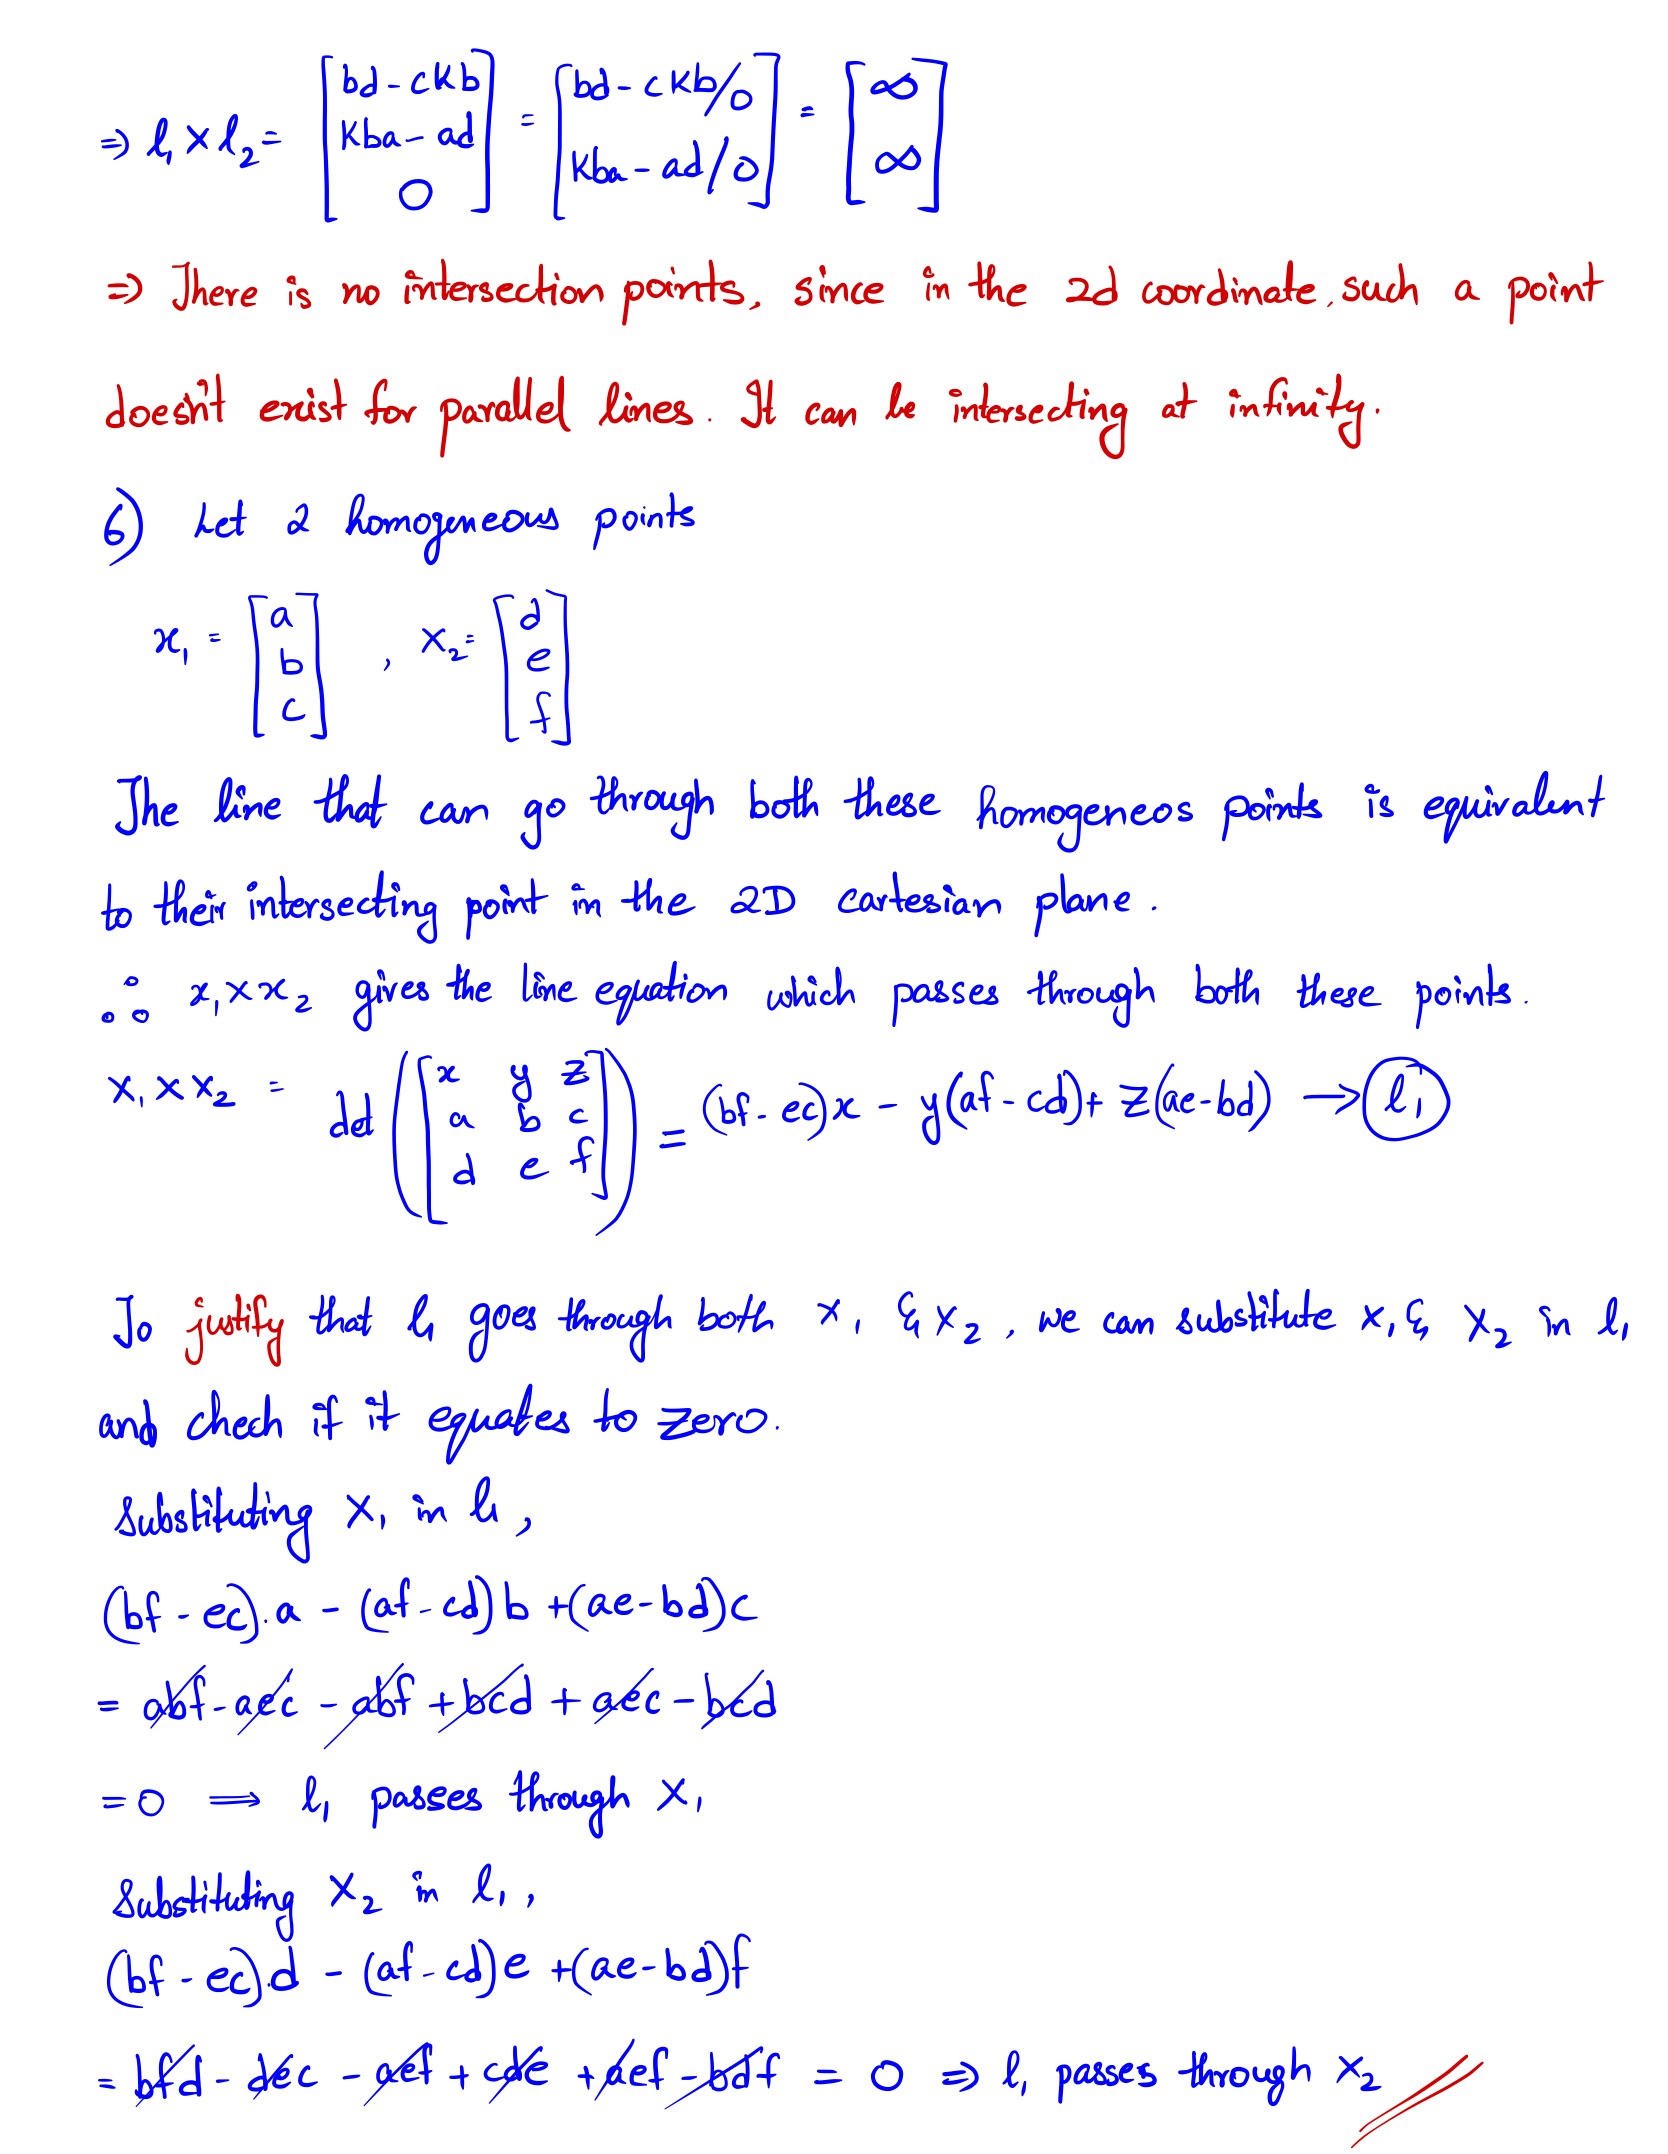 ⇒ l₁ × l₂ = [bd - ckb; kba - ad; 0] = [bd - ckb/0; kba - ad/0] = [∞; ∞]
⇒ There is no intersection points, since in the 2d coordinate, such a point
doesn't exist for parallel lines. It can be intersecting at infinity.
6) Let 2 homogeneous points
x₁ = [a; b; c] , x₂ = [d; e; f]
The line that can go through both these homogeneos points is equivalent
to their intersecting point in the 2D cartesian plane.
∴ x₁ × x₂ gives the line equation which passes through both these points.
x₁ × x₂ = det([x y z; a b c; d e f]) = (bf - ec)x - y(af - cd) + z(ae - bd) → l₁
To justify that l₁ goes through both x₁ & x₂, we can substitute x₁ & x₂ in l₁
and chech if it equates to zero.
Substituting x₁ in l₁,
(bf - ec).a - (af - cd)b + (ae - bd)c
= abf - aec - abf + bcd + aec - bcd
= 0 ⇒ l₁ passes through x₁
Substituting x₂ in l₁,
(bf - ec).d - (af - cd)e + (ae - bd)f
= bfd - dec - aef + cde + aef - bdf = 0 ⇒ l₁ passes through x₂